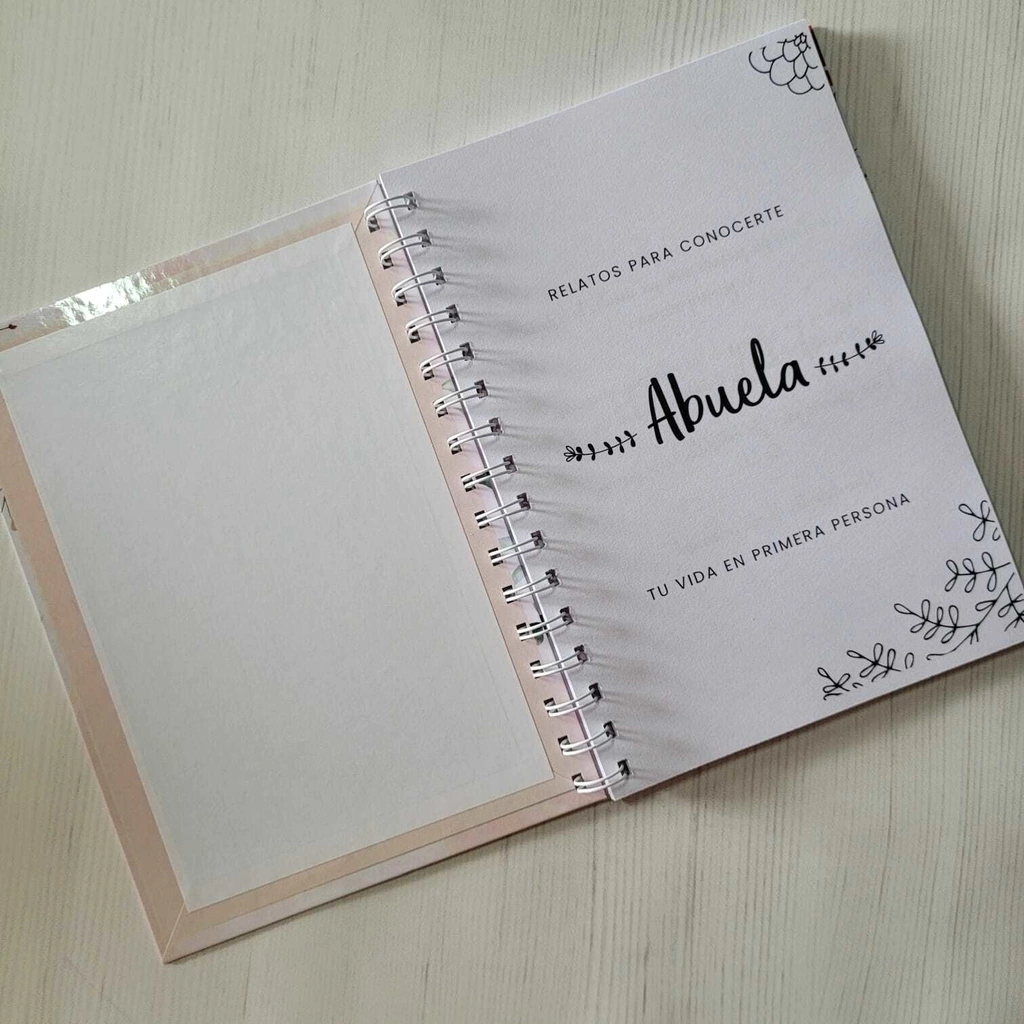 RELATOS PARA CONOCERTE
Abuela
TU VIDA EN PRIMERA PERSONA